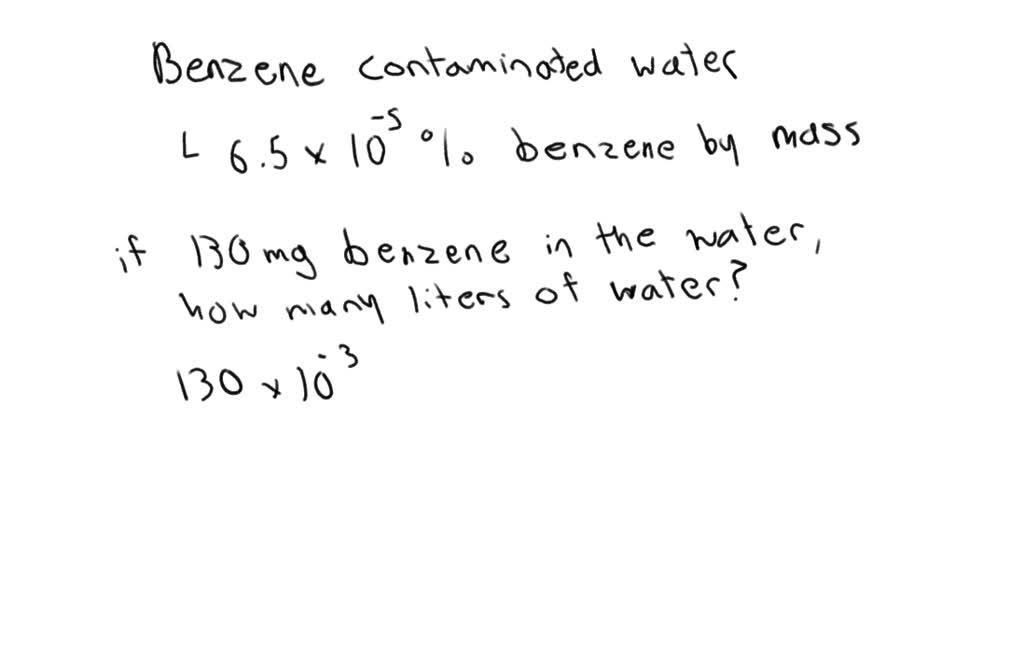 Benzene contaminated water
L 6.5 x 10^-5 % benzene by mass
if 130 mg benzene in the water,
how many liters of water?
130 x 10^-3